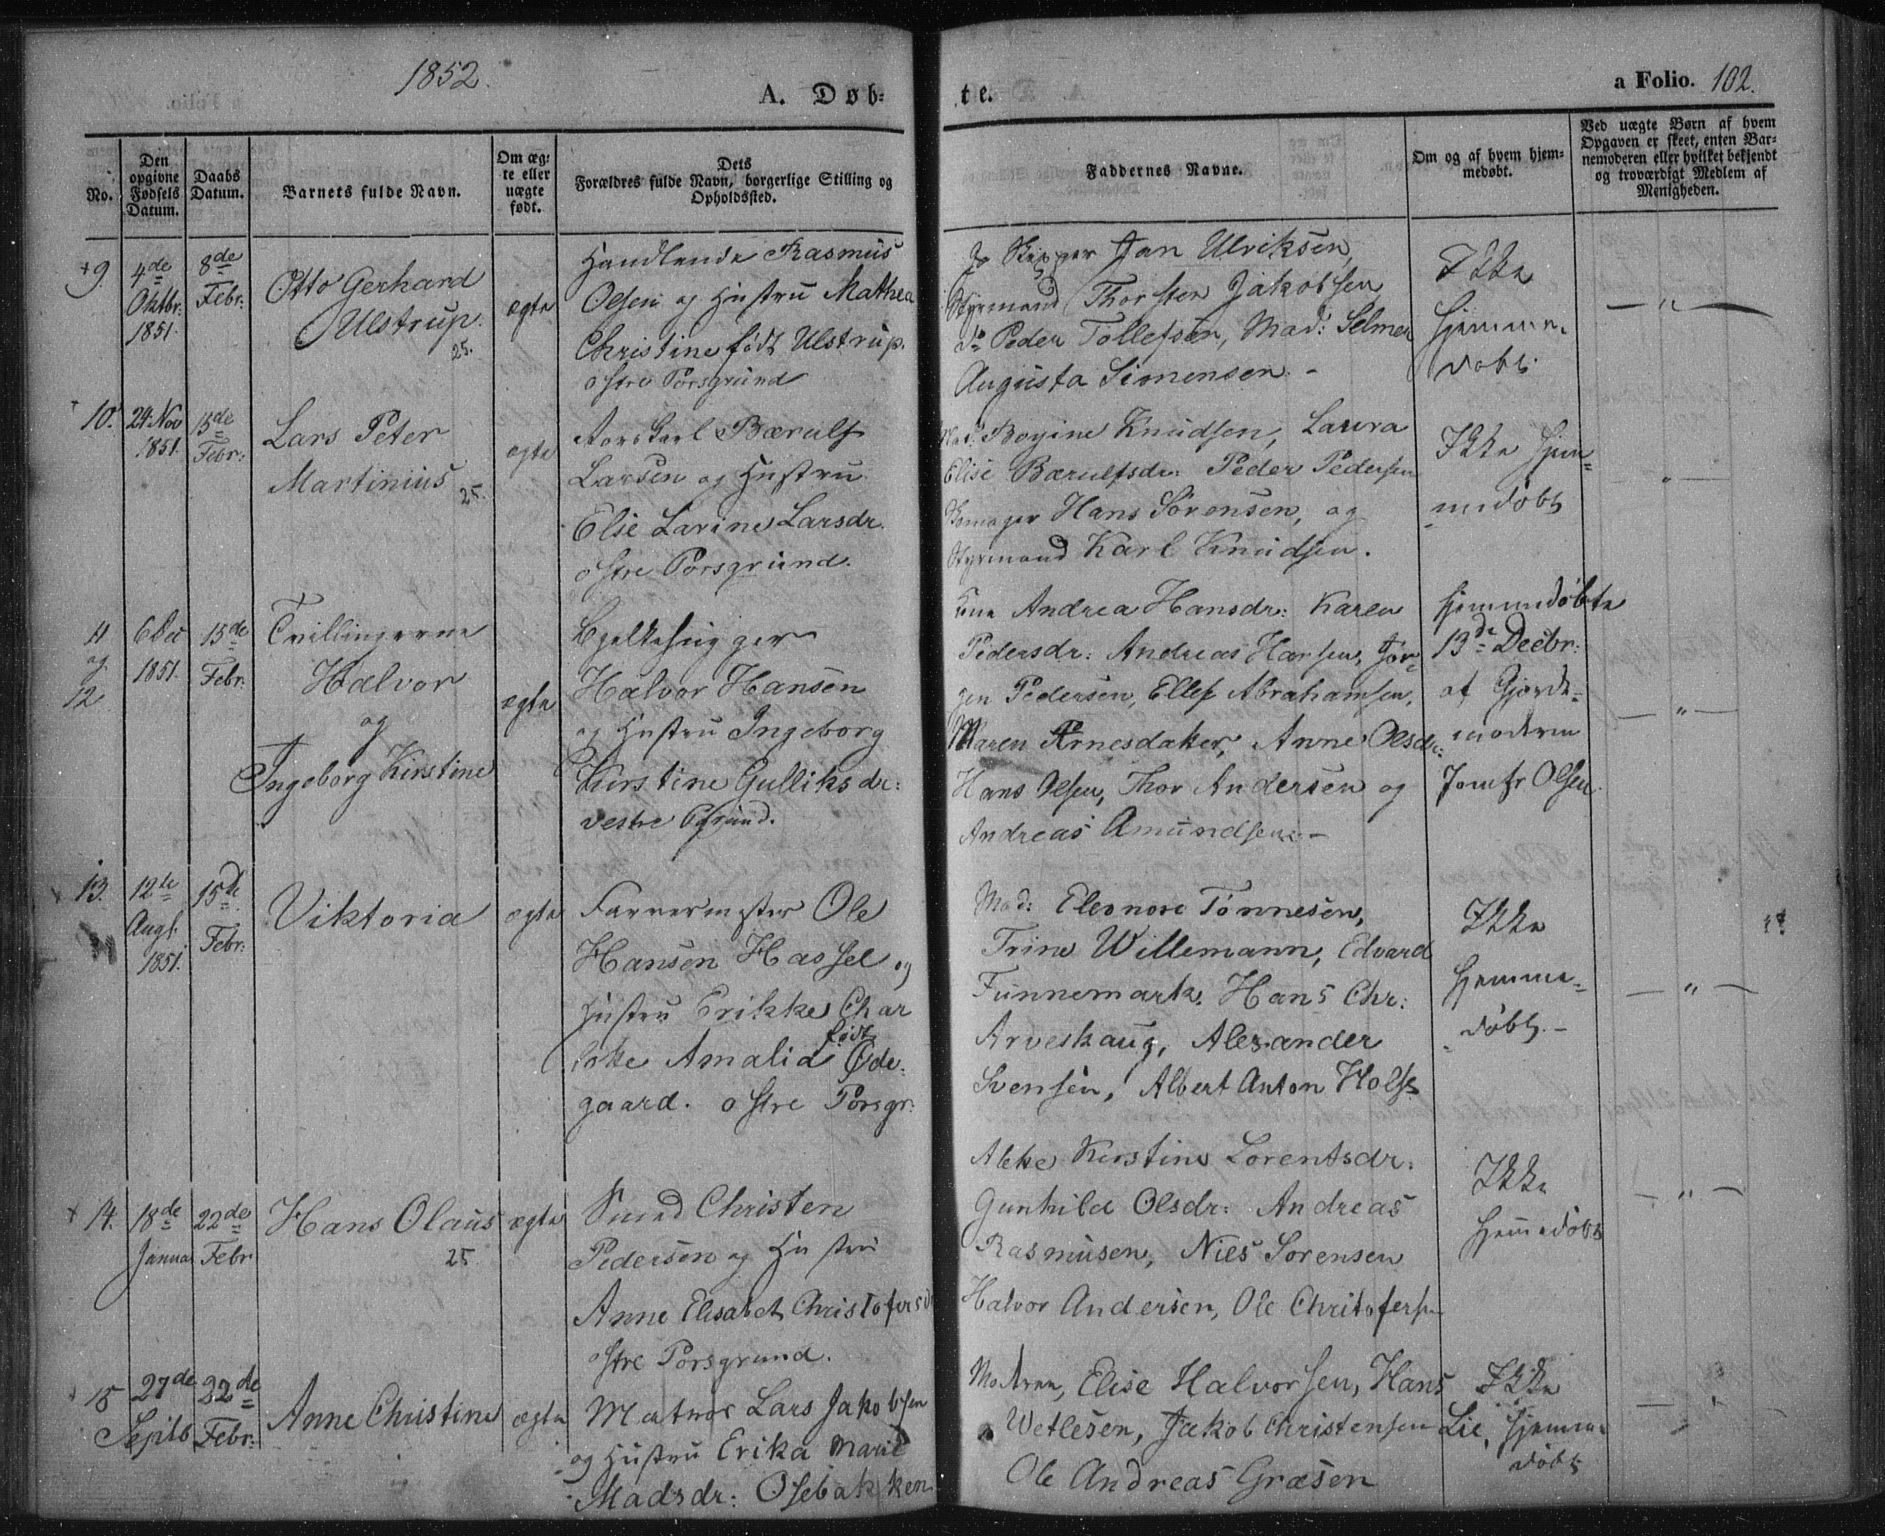 1852.
A. Døb-
te.
a Folio. 102.
No.
Den opgivne Fødsels Datum.
Daabs Datum.
Barnets fulde Navn.
Om æg-
te eller
uægte
født.
Dets
Forældres fulde Navn, borgerlige Stilling og
Opholdssted.
Faddernes Navne.
Om og af hvem hjem-
medøbt.
Ved uægte Børn af hvem
Opgaven er skeet, enten Bar-
nemoderen eller hvilket bekjendt
og troværdigt Medlem af
Menigheden.
+9.
4de
Oktbr:
1851.
8de
Febr:
Otto Gerhard
Ulstrup.
25.
ægte
Handlende Rasmus
Olsen og Hustru Mathea
Christine født Ulstrup.
østre Porsgrund
Skipper Jan Ulriksen,
Styrmand Thorsten Jakobsen
do Peder Tollefsen, Mad: Selmer
Augusta Simensen. -
Ikke
hjemme-
døbt.
— " —
+ 10.
24 Nov
1851.
15de
Febr:
Lars Peter
Martinius
25.
ægte
Larsen og Hustru
Elise Larine Larsdr.
østre Porsgrund.
Mad: Knudsen, Laura
Elise Bærulfsdr: Peder Pedersen
Hans Sørensen, og
Styrmand Karl Knudsen.
Ikke hjem-
medøbt
— " —
11
og
12
6 Dec
1851.
15de
Febr:
Tvillingerne
Halvor
og
Ingeborg Kirstine
ægte
Bjelkehugger
Halvor Hansen
og Hustru Ingeborg
Kirstine Gulliksdr:
vestre Pgrund.
Kone Andrea Hansdr: Karen
Pedersdr: Andreas Hansen, Jør-
gen Pedersen, Ellef Abrahamsen,
Maren Arnesdaker, Anne Olsdr:
Hans Olsen, Thor Andersen og
Andreas Amundsen. -
hjemmedøbte
13de Decbr:
af Gjorde-
moderen
Jomfr Olsen.
— " —
+ 13.
12te
Augt.
1851.
15de
Febr:
Viktoria
ægte
Farvermester Ole
Hansen Hassel og
Hustru Erikke Char
lotte Amalia født Øde-
gaard. østre Porsgr:
Mad: Eleonore Tønnesen,
Trine Willemann, Edvard
Funnemark, Hans Chr:
Arveskaug, Alexander
Svensen, Albert Anton Holst
Ikke
hjemme-
døbt. -
— " —
+ 14.
18de
Januar
22de
Febr
Hans Olaus
25.
ægte
Smed Christen
Pedersen og Hustru
Anne Elisabet Christofersdr
østre Porsgrund.
Kirstine Lorentsdr:
Gunhild Olsdr: Andreas
Rasmusen, Niels Sørensen
Halvor Andersen, Ole Christofersen
Ikke
hjemmedøbt
— " —
+ 15
27de
Septb
22de
Febr:
Anne Christine
ægte
Matros Lars Jakobsen
og Hustru Erika Marie
Madsdr: Osebakken
Moderen, Elise Halvorsen, Hans
Wetlesen, Jakob Christensen Lie,
Ole Andreas Græsen
Ikke
hjemme-
døbt
— " —